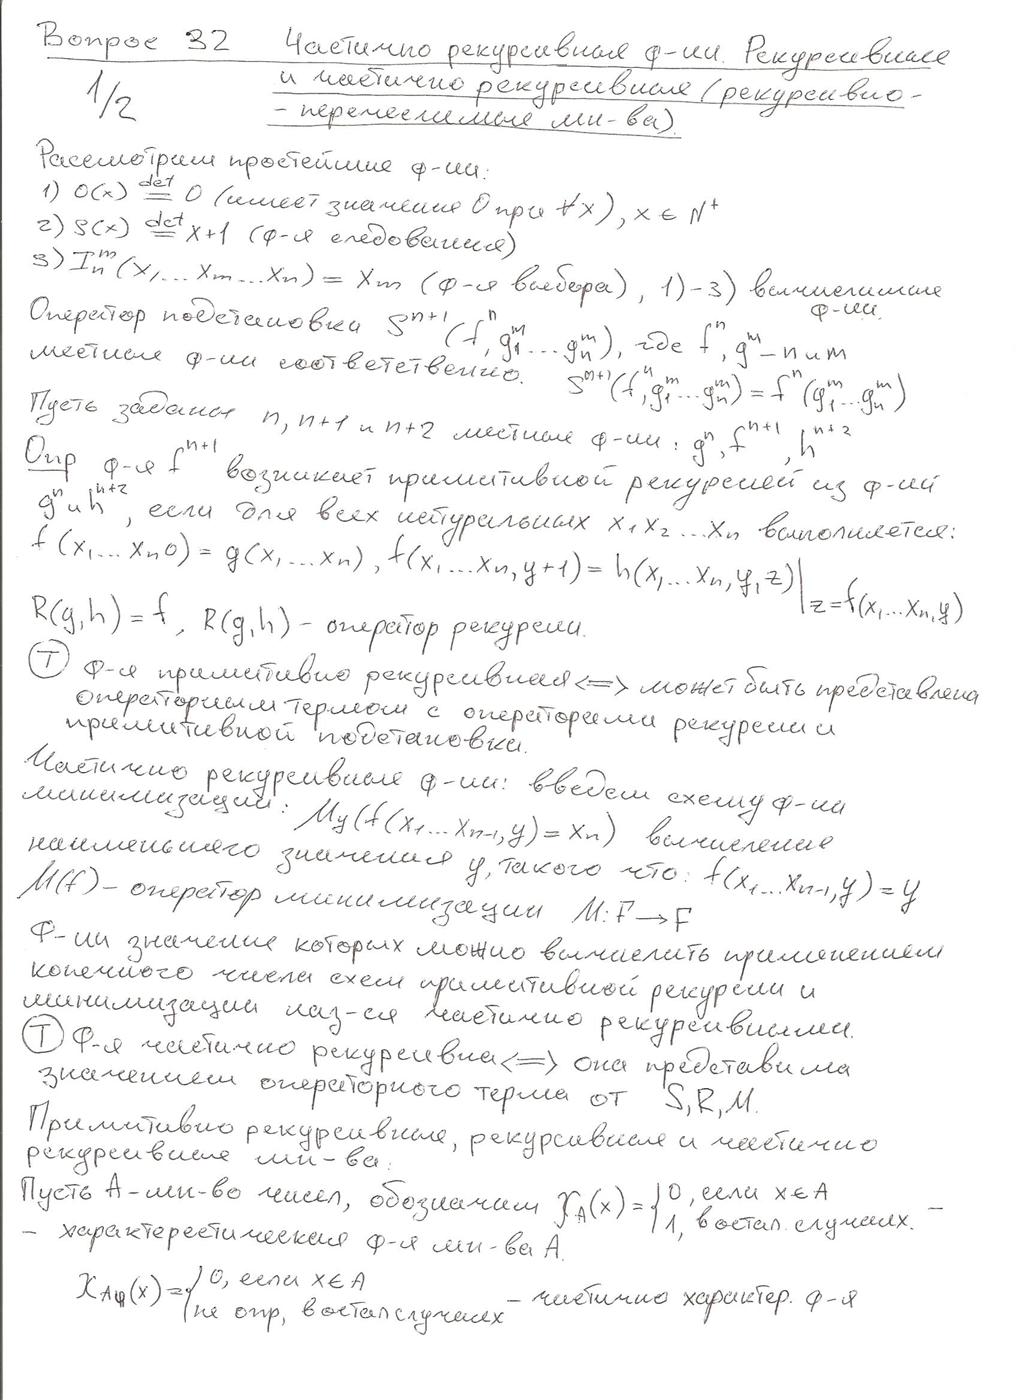 Вопрос 32 Частично рекурсивные ф-ии. Рекурсивные
1/2 и частично рекурсивные (рекурсивно-
- перечислимые мн-ва).
Рассмотрим простейшие ф-ии:
1) O(x) def= 0 (имеет значение 0 при ∀x), x ∈ N⁺
2) S(x) def= x+1 (ф-я следования)
3) Iₙᵐ(x₁...xₘ...xₙ) = xₘ (ф-я выбора), 1)-3) вычислимые
ф-ии.
Оператор подстановки Sⁿ⁺¹(fⁿ, g₁ᵐ...gₙᵐ), где fⁿ, gᵐ – n и m
местные ф-ии соответственно. Sⁿ⁺¹(fⁿ, g₁ᵐ...gₙᵐ) = fⁿ(g₁ᵐ...gₙᵐ)
Пусть заданы n, n+1 и n+2 местные ф-ии: gⁿ, fⁿ⁺¹, hⁿ⁺²
Опр ф-я fⁿ⁺¹ возникает примитивной рекурсией из ф-ий
gⁿ и hⁿ⁺², если для всех натуральных x₁x₂...xₙ выполняется:
f(x₁...xₙ0) = g(x₁...xₙ), f(x₁...xₙ,y+1) = h(x₁...xₙ,y,z)|z=f(x₁...xₙ,y)
R(g,h) = f, R(g,h) – оператор рекурсии.
(Т) Ф-я примитивно рекурсивная <=> может быть представлена
операторным термом с операторами рекурсии и
примитивной подстановки.
Частично рекурсивные ф-ии: введем схему ф-ии
минимизации: My(f(x₁...xₙ₋₁,y)=xₙ) вычисление
наименьшего значения y, такого что: f(x₁...xₙ₋₁,y)=y
M(f) – оператор минимизации M: F → F
Ф-ии значение которых можно вычислить применением
конечного числа схем примитивной рекурсии и
минимизации наз-ся частично рекурсивными.
(Т) Ф-я частично рекурсивна <=> она представима
значением операторного терма от S, R, M.
Примитивно рекурсивные, рекурсивные и частично
рекурсивные мн-ва.
Пусть А-мн-во чисел, обозначим χA(x) = { 0, если x∈A
1, в остал. случаях. –
– характерестическая ф-я мн-ва А.
χAч(x) = { 0, если x∈A
не опр, в остал случаях – частично характер. ф-я